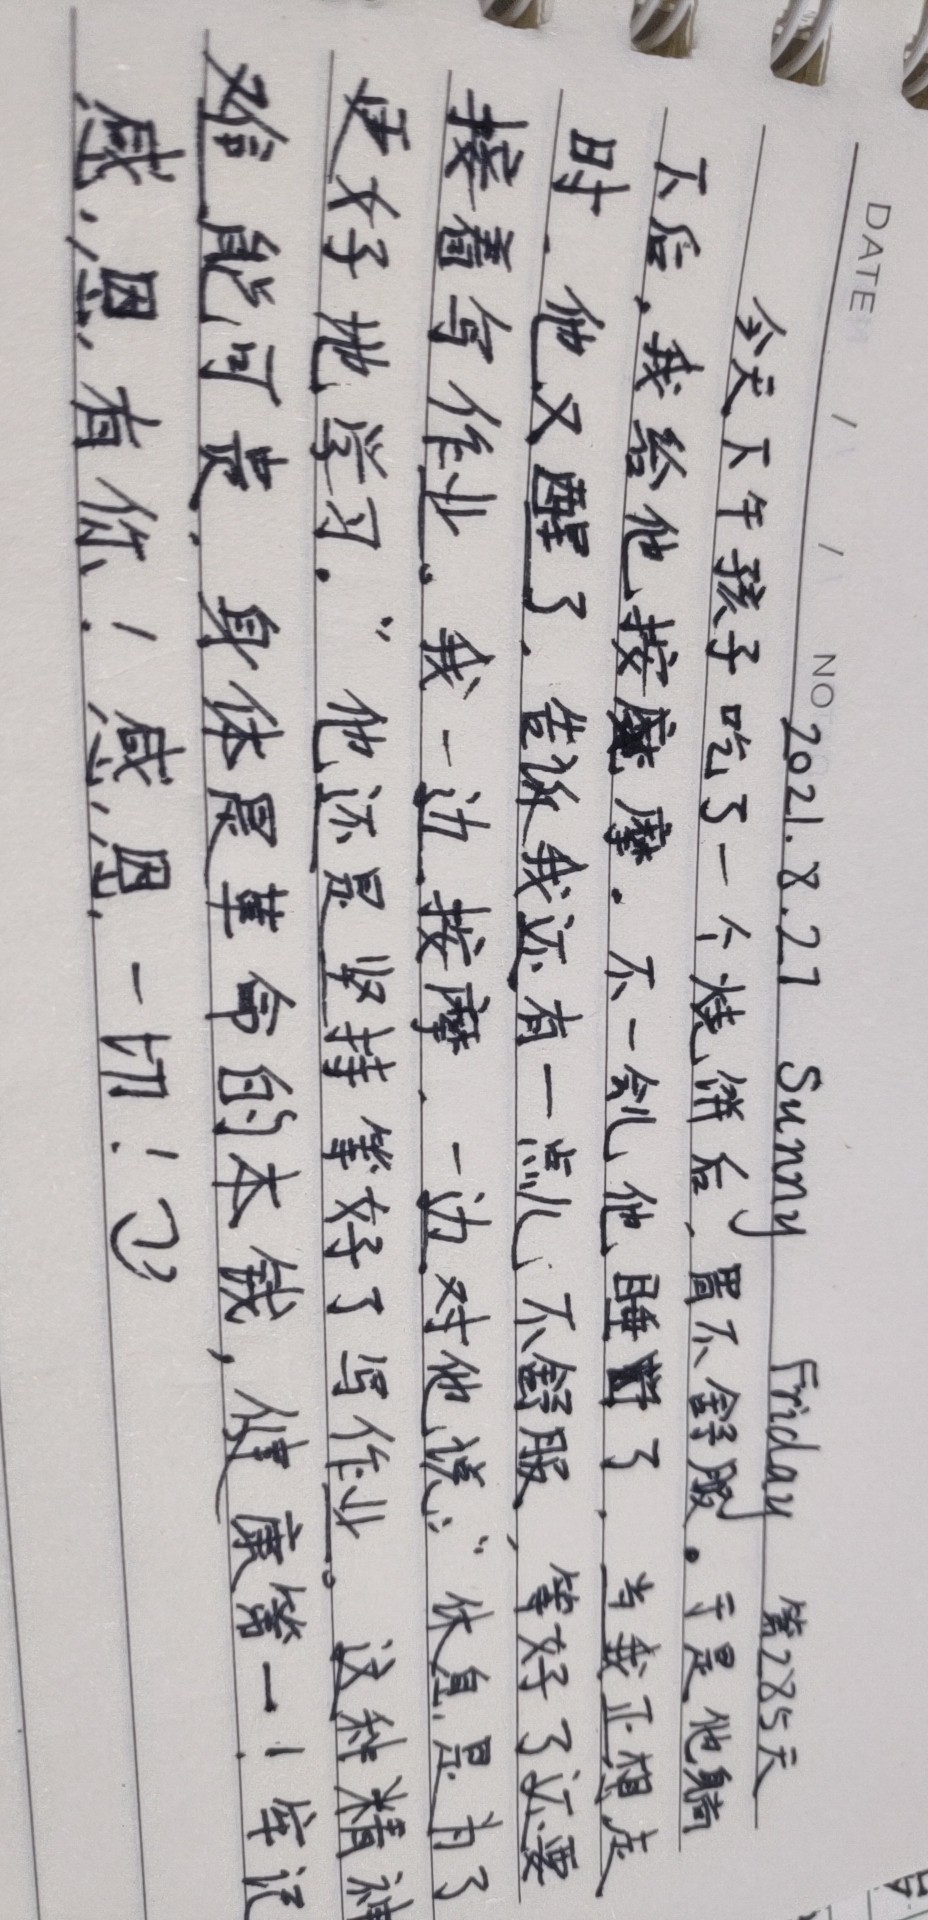 DATE / / NO
2021.8.27 Sunny Friday 第285天
今天下午孩子吃了一个烧饼后、胃不舒服。于是他躺
下后，我给他按摩。不一会儿他睡着了.当我正想走
时.他又醒了.告诉我还有一点儿不舒服、等好了还要
接着写作业。我一边按摩、一边对他说:“休息是为了
更好地学习.”他还是坚持等好了写作业。这种精神
难能可贵.身体是革命的本钱,健康第一!牢记
感恩有你!感恩一切!